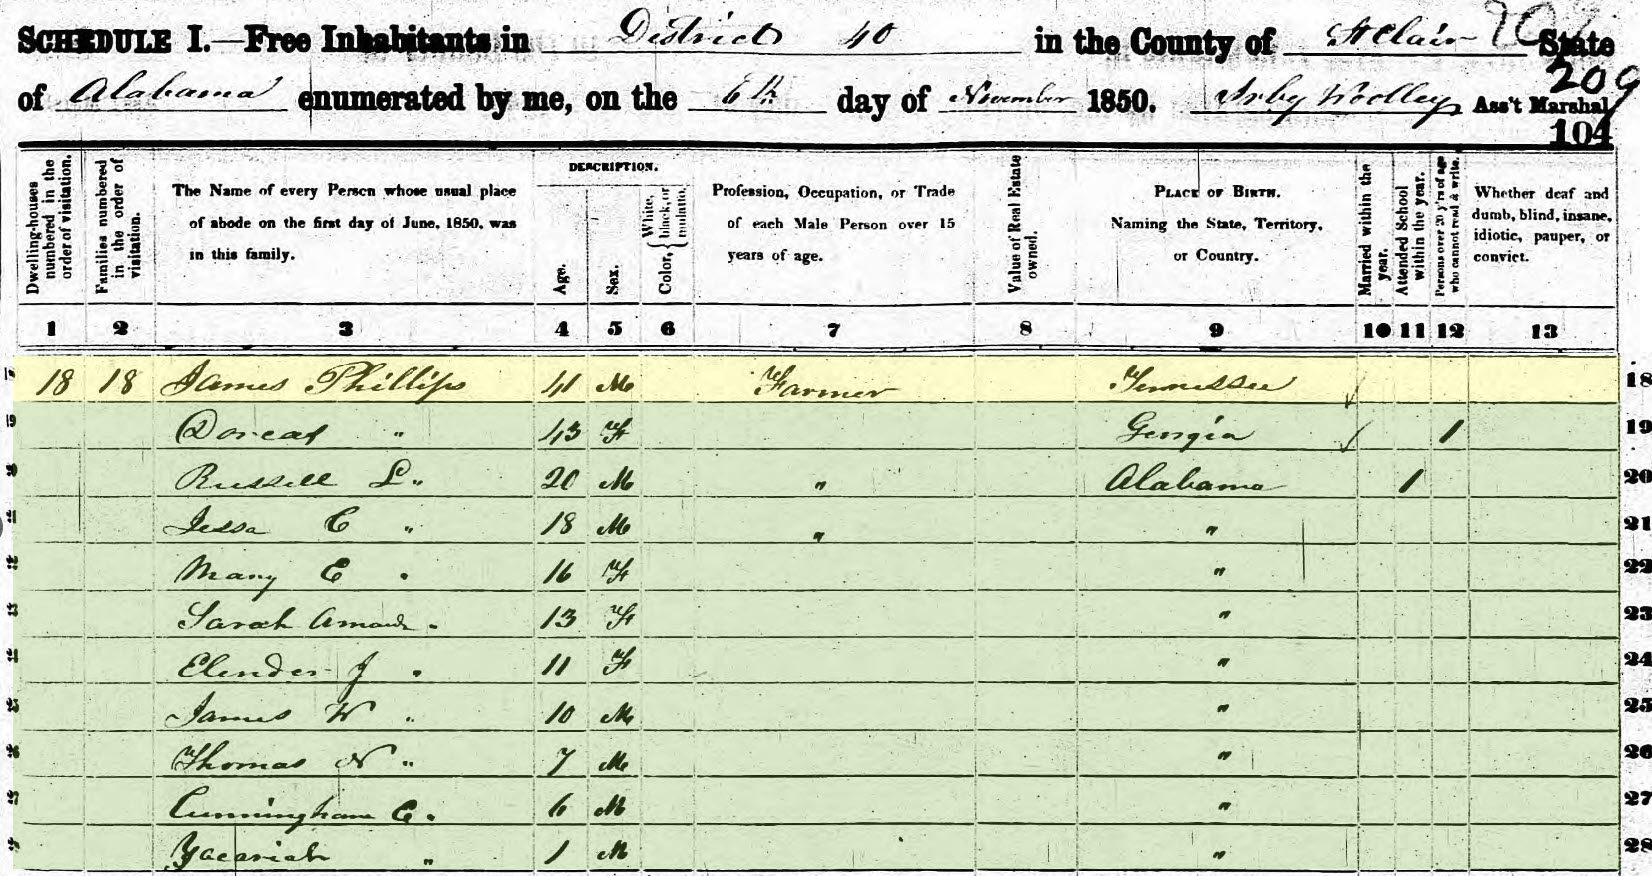 208
SCHEDULE I.—Free Inhabitants in District 40 in the County of St Clair State
209
of Alabama enumerated by me, on the 6th day of November 1850. Irby Woolley Ass't Marshal
104
DESCRIPTION.
Dwelling-houses numbered in the order of visitation.
Families numbered in the order of visitation.
The Name of every Person whose usual place of abode on the first day of June, 1850, was in this family.
Age.
Sex.
Color, { White, black, or mulatto.
Profession, Occupation, or Trade of each Male Person over 15 years of age.
Value of Real Estate owned.
PLACE OF BIRTH. Naming the State, Territory, or Country.
Married within the year.
Attended School within the year.
Persons over 20 y'rs of age who cannot read & write.
Whether deaf and dumb, blind, insane, idiotic, pauper, or convict.
1 2 3 4 5 6 7 8 9 10 11 12 13
18 18 James Phillips 41 M Farmer Tennessee 18
Dorcas " 43 F Georgia 1 19
Russell L " 20 M " Alabama 1 20
Jessa C " 18 M " " 21
Mary E " 16 F " 22
Sarah Amand " 13 F " 23
Elender J " 11 F " 24
James W " 10 M " 25
Thomas N " 7 M " 26
Cunningham C " 6 M " 27
Zacariah " 1 M " 28